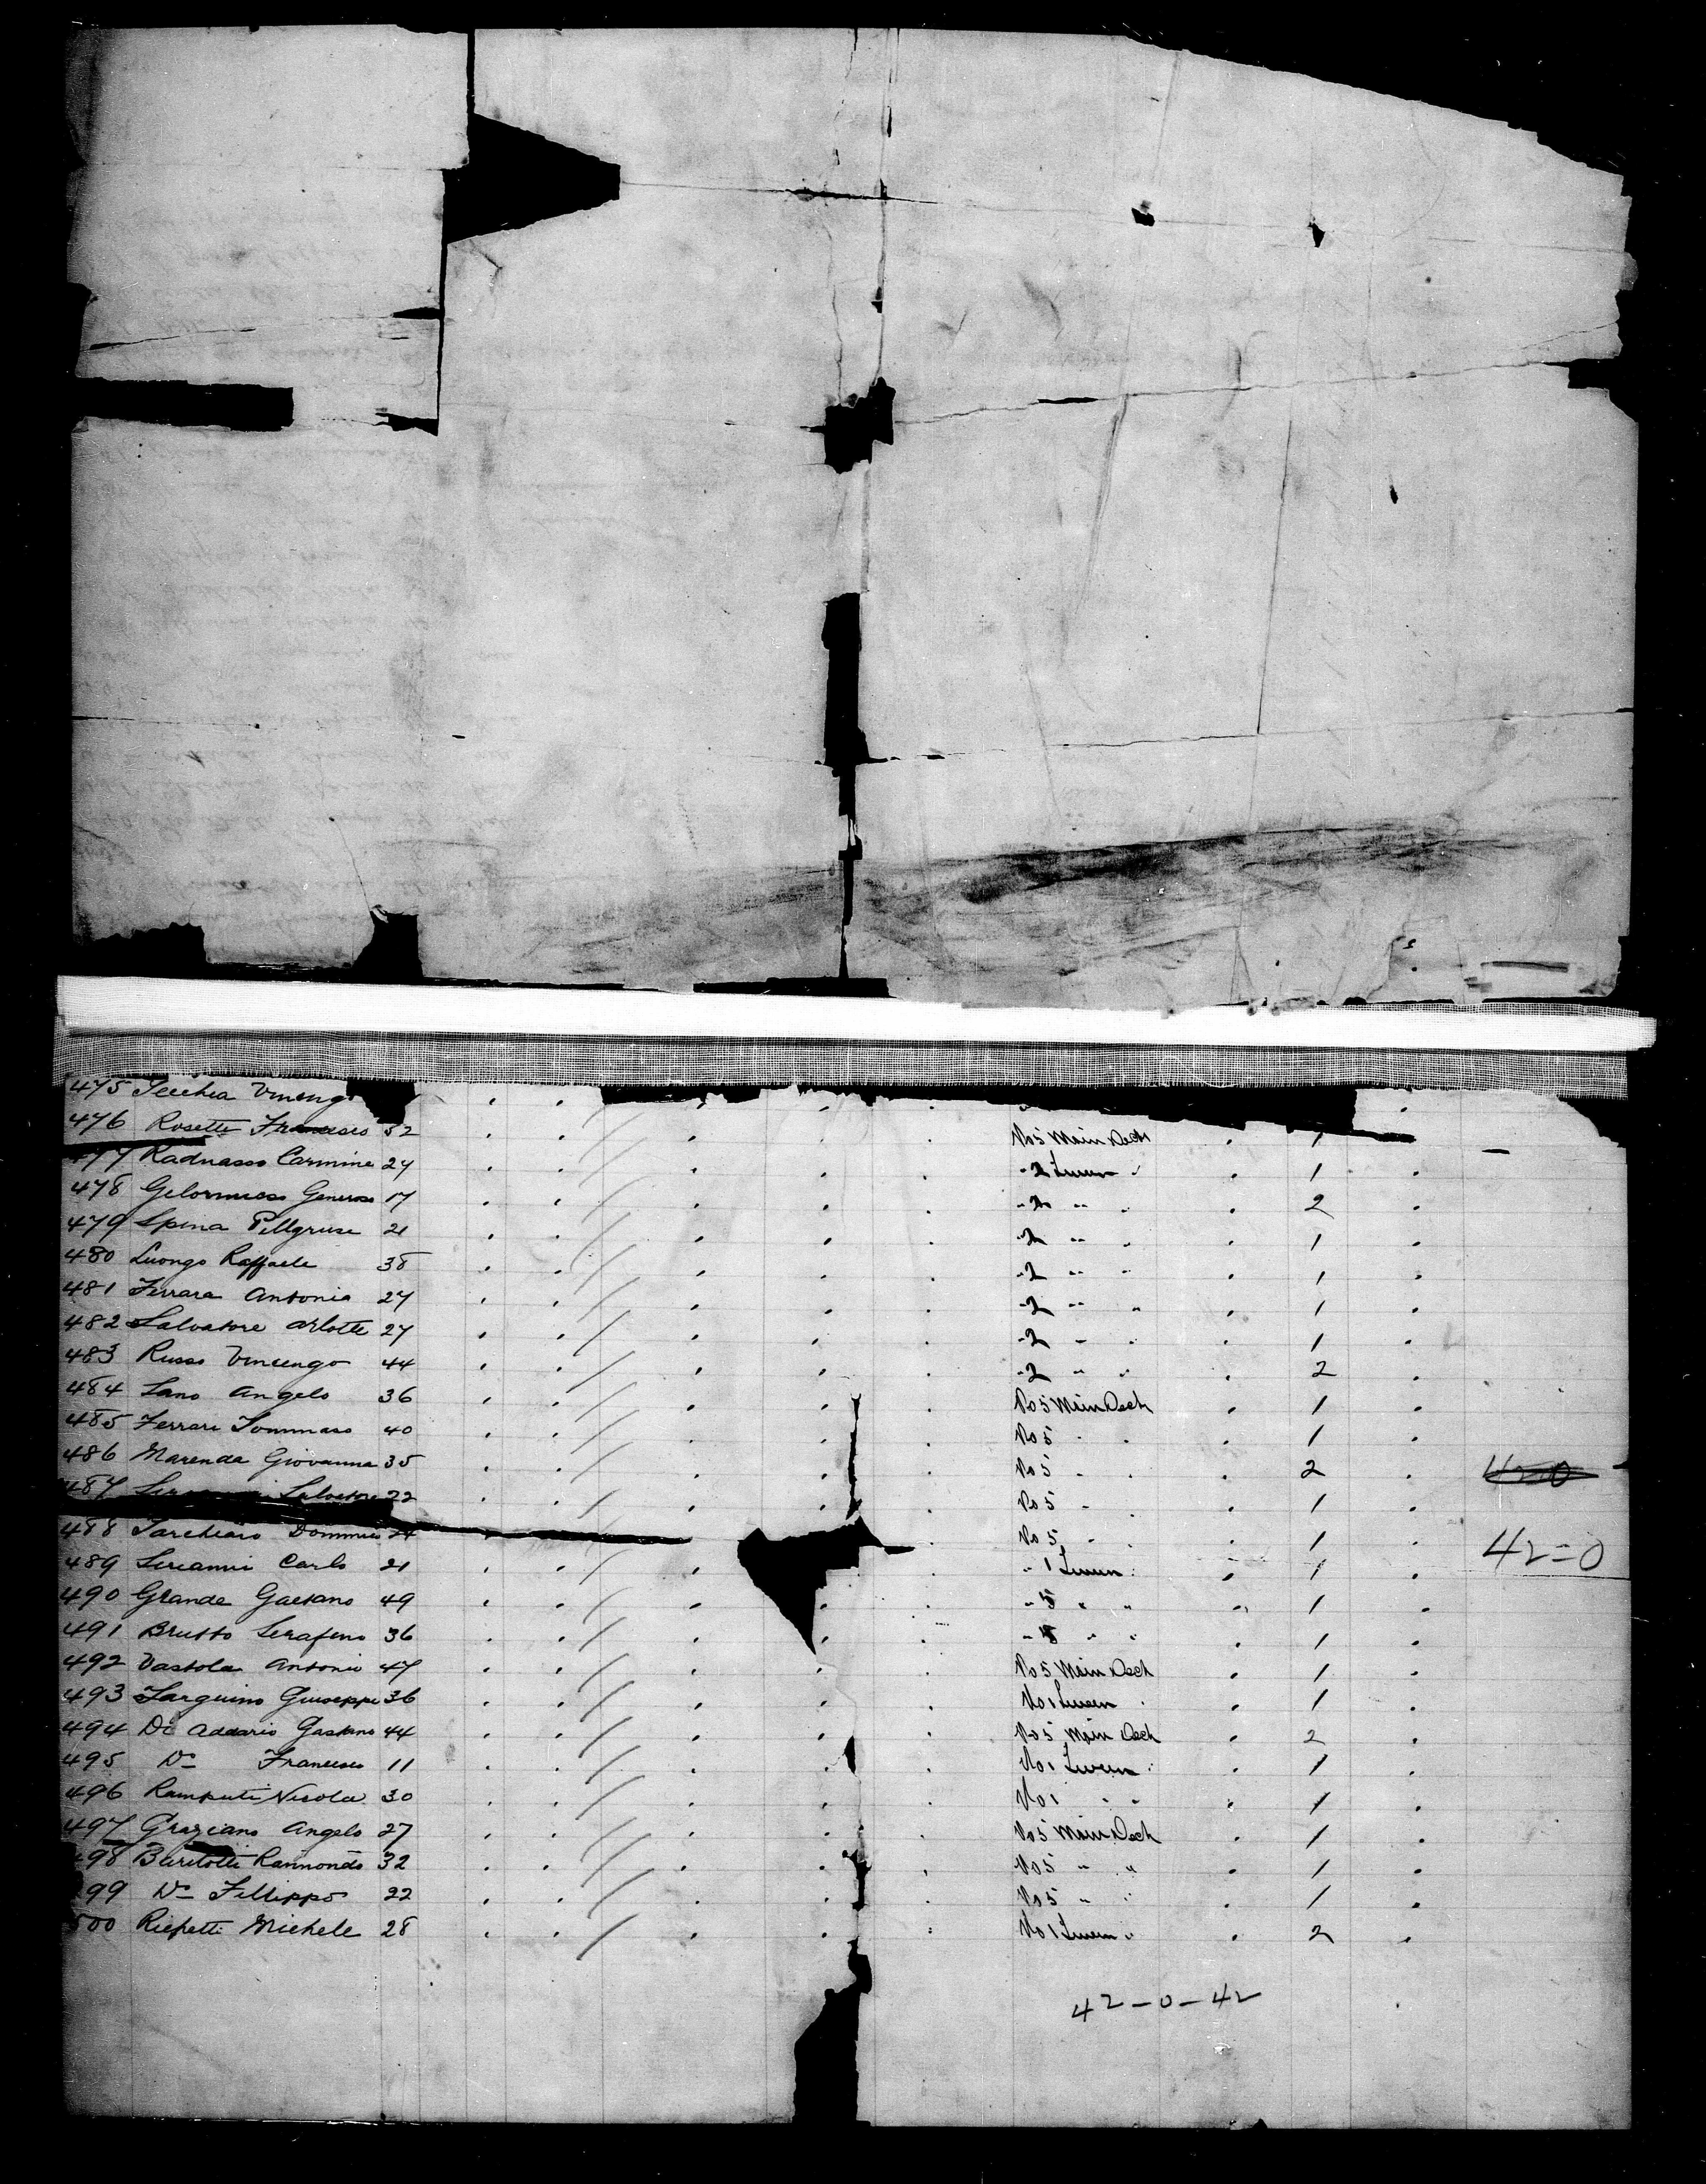 475 Secchia Vincenz
476 Rosetti Francesco 32 No 5 Main Deck 1
477 Raduasso Carmine 24 - 2 Lower " 1
478 Generoso 17 - 2 " " 2
479 Spina Pellgruse 21 - 2 " " 1
480 Luongo Raffaele 38 - 2 " " 1
481 Ferrara Antonio 27 - 2 " " 1
482 Salvatore Arlotte 27 - 2 " " 1
483 Russo Vincenzo 44 - 2 " " 2
484 Sano Angelo 36 No 5 Main Deck 1
485 Ferrari Tommaso 40 No 5 " " 1
486 Marenda Giovanna 35 No 5 " " 2
487 Salvatore 22 No 5 " 1
488 Tarchiaro Dominico No 5 " 1
42=0
489 Carlo 21 " 1 Lower " 1
490 Grande Gaetano 49 - 5 " " 1
491 Brutto Serafino 36 " " 1
492 Vastola Antonio 47 No 5 Main Deck 1
493 Targuino Giuseppe 36 No 1 Lower " 1
494 Di Addario Gaetano 44 No 5 Main Deck 2
495 Do Francesco 11 No 1 Lower " 1
496 Ramputi Nicola 30 No 1 " " 1
497 Graziano Angelo 27 No 5 Main Deck 1
498 Barilotti Raimondo 32 No 5 " " 1
499 Do Fillippo 22 No 5 " " 1
500 Richetti Michele 28 No 1 Lower " 2
42-0-42